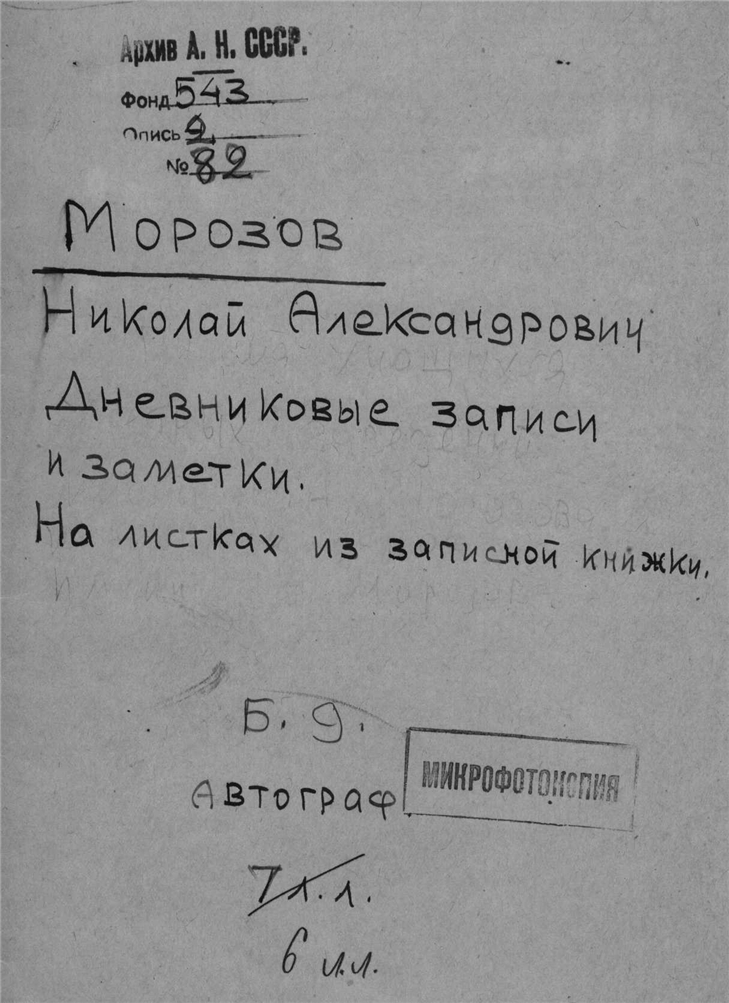 Архив А. Н. СССР.
Фонд 543
Опись 2
№ 82
Морозов
Николай Александрович
Дневниковые записи
и заметки.
На листках из записной книжки.
Б. д.
Автограф
МИКРОФОТОКОПИЯ
7 л.л.
6 л.л.